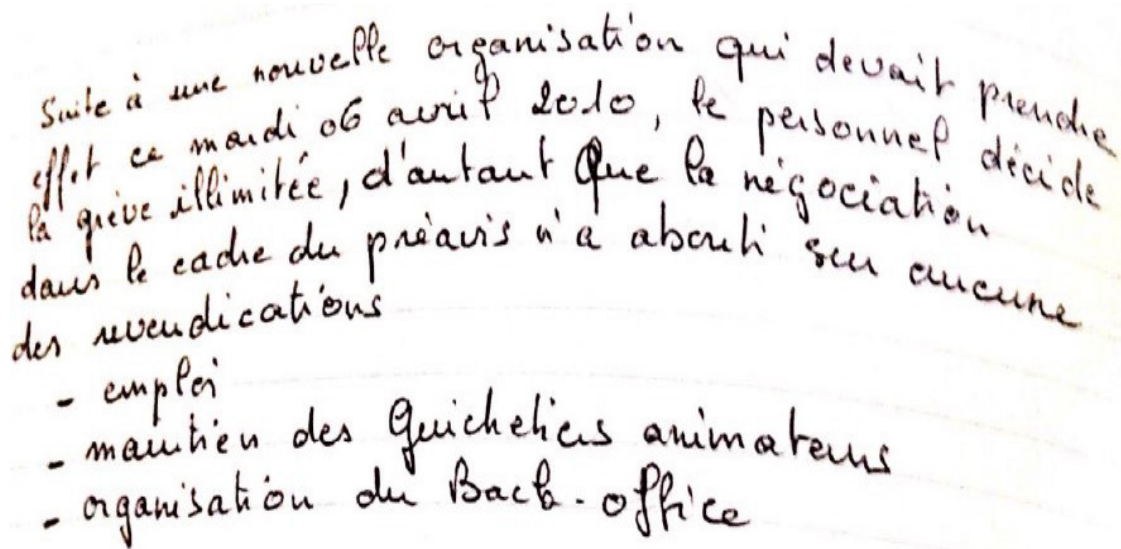 Suite à une nouvelle organisation qui devait prendre
effet ce mardi 06 avril 2010, le personnel décide
la grève illimitée, d'autant Que la négociation
dans le cadre du préavis n'a abouti sur aucune
des revendications
- emploi
- maintien des Guichetiers animateurs
- organisation du Back-office